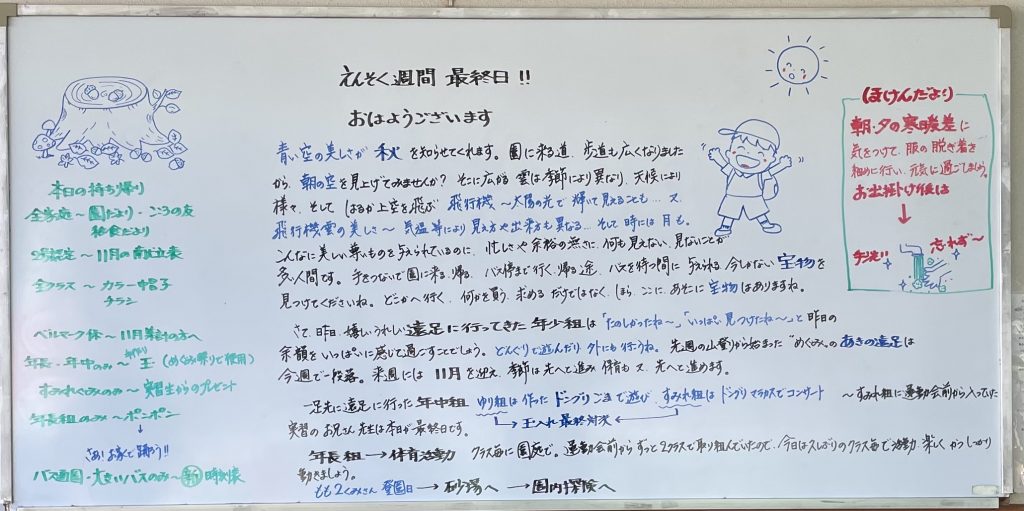 えんそく週間 最終日!!
おはようございます
青い空の美しさが 秋 を知らせてくれます。園に来る道、歩道も広くなりました
から、朝の空を見上げてみませんか? そこに広がる 雲は季節により異なり、天候により
様々、そして はるか上空を飛ぶ 飛行機 〜太陽の光で 輝いて見えることも…又
飛行機雲の美しさ〜 気温等により見え方や出来方も異なる…そして時には月も。
こんなに美しい尊いものを与えられているのに、忙しさや余裕の無さに、何も見えない、見ないことが
多い人間です。手をつないで園に来る、帰る、バス停まで行く、帰る途、バスを待つ間に 与えられる 今しかない 宝物を
見つけてくださいね。どこかへ行く、何かを買う、求める だけではなく、ほら、ここに、あそこに 宝物はありますね。
さて、昨日、嬉しい うれしい 遠足に行ってきた 年少組は「たのしかったね〜」「いっぱい見つけたね〜」と 昨日の
余韻をいっぱいに感じて過ごすことでしょう。どんぐりで遊んだり 外にも行こうね。先週の山登りから始まった"めぐみ"の あきの遠足は
今週で一段落。来週には 11月を迎え、季節は先へと進み 保育も又、先へと進めます。
一足先に遠足に行った 年中組 ゆり組は作った ドングリごまで遊び すみれ組は ドングリマラカスでコンサート 〜すみれ組に運動会前から入っていた
→玉入れ最終対決←
実習のお兄さん先生は本日が最終日です。
年長組→体育活動 クラス毎に園庭で。運動会前からずっと2クラスで取り組んでいたので、今日は久しぶりのクラス毎で活動、楽しく かつしっかり
動きましょう。
もも2くみさん 登園日→砂場へ →園内探険へ
本日の持ち帰り
全家庭〜園だより・こころの友
給食だより
2号認定〜11月の献立表
全クラス〜カラー帽子
チラシ
ベルマーク係〜11月集計の方へ
年長・年中のみ〜玉(めぐみ祭りで使用)
すみれぐみのみ〜実習生からのプレゼント
年長組のみ〜ポンポン
↓
さあ!お家で踊ろう!!
バス通園・大きいバスのみ〜新 時刻表
ほけんだより
朝・夕の寒暖差に
気をつけて、服の脱ぎ着を
細めに行い、元気に過ごしましょう。
お出掛け後は
↓
手洗い 忘れず〜